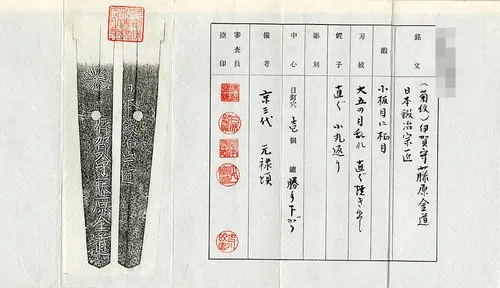 銘文
(菊紋)伊賀守藤原金道
日本鍛冶宗匠
鍛
小板目に柾目
刃紋
大五の目乱れ 直ぐ焼き出し
鋩子
直ぐ 小丸返り
彫刻
中心
目釘穴 壱 個 鑢 勝手下がり
備考
京三代 元禄頃
審査員
捺印
伊賀守藤原金道
日本鍛冶宗匠